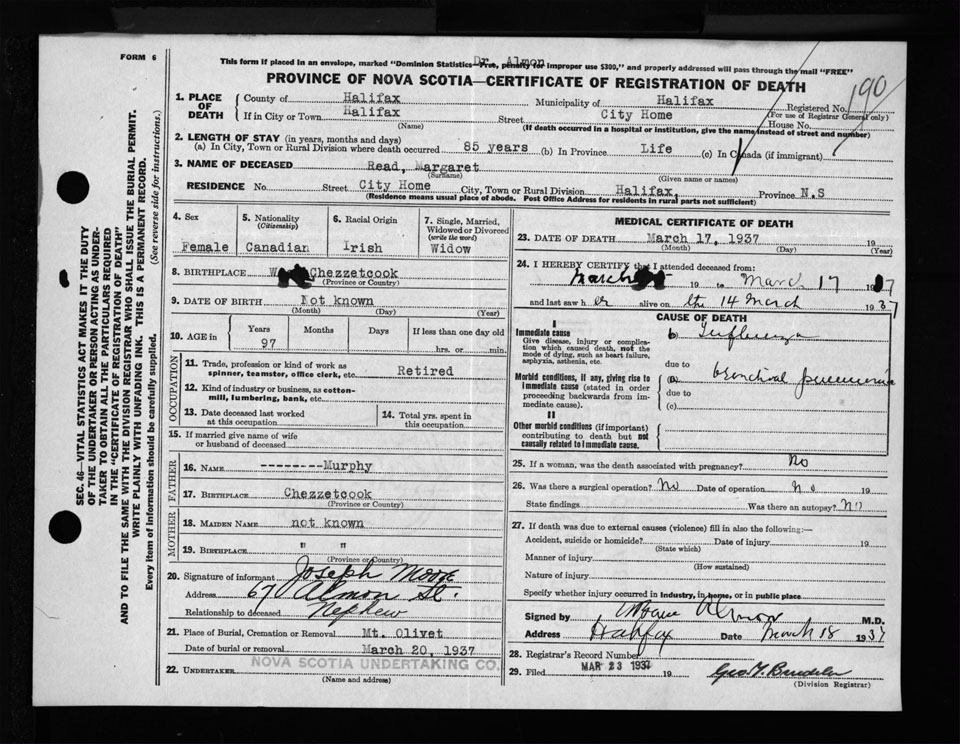 FORM 6
This form if placed in an envelope, marked "Dominion Statistics—Free, penalty for improper use $300," and properly addressed will pass through the mail "FREE"
Dr. Almon
PROVINCE OF NOVA SCOTIA—CERTIFICATE OF REGISTRATION OF DEATH
190
1. PLACE OF DEATH
County of Halifax Municipality of Halifax Registered No.
(For use of Registrar General only)
If in City or Town Halifax Street City Home House No.
(Name) (If death occurred in a hospital or institution, give the name instead of street and number)
2. LENGTH OF STAY (in years, months and days)
(a) In City, Town or Rural Division where death occurred 85 years (b) In Province Life (c) In Canada (if immigrant)
3. NAME OF DECEASED Read, Margaret
(Surname) (Given name or names)
RESIDENCE No. Street City Home City, Town or Rural Division Halifax, Province N.S
(Residence means usual place of abode. Post Office Address for residents in rural parts not sufficient)
4. Sex Female
5. Nationality (Citizenship) Canadian
6. Racial Origin Irish
7. Single, Married, Widowed or Divorced (write the word) Widow
8. BIRTHPLACE Chezzetcook
(Province or Country)
9. DATE OF BIRTH Not known
(Month) (Day) (Year)
10. AGE in Years Months Days If less than one day old
97 hrs. or min.
OCCUPATION
11. Trade, profession or kind of work as spinner, teamster, office clerk, etc. Retired
12. Kind of industry or business, as cotton-mill, lumbering, bank, etc.
13. Date deceased last worked at this occupation
14. Total yrs. spent in this occupation
15. If married give name of wife or husband of deceased
FATHER
16. NAME --------Murphy
17. BIRTHPLACE Chezzetcook
(Province or Country)
MOTHER
18. MAIDEN NAME not known
19. BIRTHPLACE " "
(Province or Country)
20. Signature of informant Joseph Moore
Address 67 Almon St.
Relationship to deceased Nephew
21. Place of Burial, Cremation or Removal Mt. Olivet
Date of burial or removal March 20, 1937
22. UNDERTAKER NOVA SCOTIA UNDERTAKING CO.
(Name and address)
MEDICAL CERTIFICATE OF DEATH
23. DATE OF DEATH March 17, 1937 19
(Month) (Day) (Year)
24. I HEREBY CERTIFY that I attended deceased from:
March 19 to March 17 1937
and last saw her alive on the 14 March 1937
CAUSE OF DEATH
I
Immediate cause
Give disease, injury or complication which caused death, not the mode of dying, such as heart failure, asphyxia, asthenia, etc.
Morbid conditions, if any, giving rise to immediate cause (stated in order proceeding backwards from immediate cause).
II
Other morbid conditions (if important) contributing to death but not causally related to immediate cause.
b) Influenza
due to
(a) bronchial pneumonia
due to
(c)
25. If a woman, was the death associated with pregnancy? No
26. Was there a surgical operation? No Date of operation no 19
State findings Was there an autopsy? No
27. If death was due to external causes (violence) fill in also the following:—
Accident, suicide or homicide? Date of injury 19
(State which)
Manner of injury
(How sustained)
Nature of injury
Specify whether injury occurred in industry, in home, or in public place
Signed by Almon M.D.
Address Halifax Date March 18 1937
28. Registrar's Record Number
29. Filed MAR 23 1937 19
(Division Registrar)
SEC. 46—VITAL STATISTICS ACT MAKES IT THE DUTY
OF THE UNDERTAKER OR PERSON ACTING AS UNDERTAKER
TO OBTAIN ALL THE PARTICULARS REQUIRED
IN THE "CERTIFICATE OF REGISTRATION OF DEATH"
AND TO FILE THE SAME WITH THE DIVISION REGISTRAR WHO SHALL ISSUE THE BURIAL PERMIT.
WRITE PLAINLY WITH UNFADING INK. THIS IS A PERMANENT RECORD.
Every item of information should be carefully supplied. (See reverse side for instructions.)